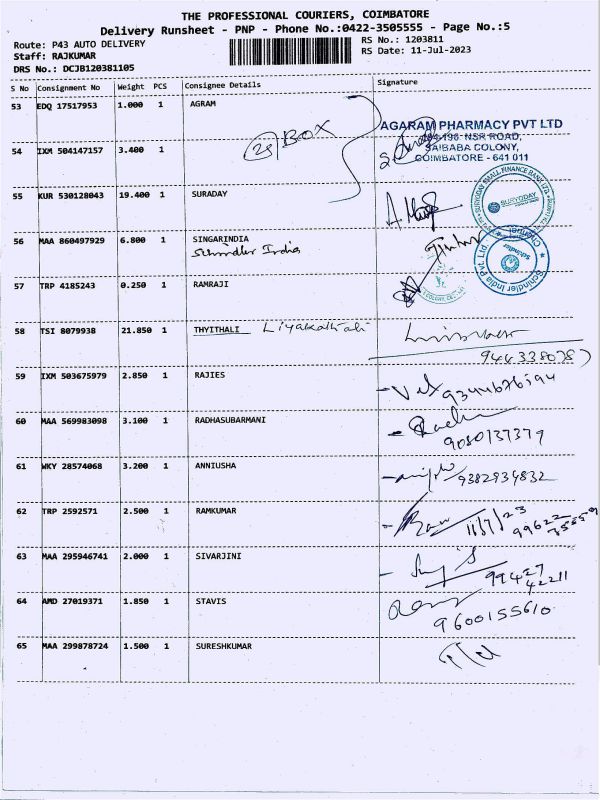 THE PROFESSIONAL COURIERS, COIMBATORE
Delivery Runsheet - PNP - Phone No.:0422-3505555 - Page No.:5
Route: P43 AUTO DELIVERY
Staff: RAJKUMAR
DRS No.: DCJB120381105
RS No.: 1203811
RS Date: 11-Jul-2023
S No Consignment No Weight PCS Consignee Details Signature
53 EDQ 17517953 1.000 1 AGRAM
BOX
AGARAM PHARMACY PVT LTD
NSR ROAD,
SAIBABA COLONY,
COIMBATORE - 641 011
54 IXM 504147157 3.400 1
55 KUR 530128043 19.400 1 SURADAY
SURYODAY
56 MAA 860497929 6.800 1 SINGARINDIA
Schindler India
Schindler India Pvt. Ltd.
Schindler
57 TRP 4185243 0.250 1 RAMRAJI
58 TSI 8079938 21.850 1 THYITHALI Liyakathali
59 IXM 503675979 2.850 1 RAJIES
9344676194
60 MAA 569983098 3.100 1 RADHASUBARMANI
9080737379
61 WKY 28574068 3.200 1 ANNIUSHA
9382934832
62 TRP 2592571 2.500 1 RAMKUMAR
11/7/23
99622
63 MAA 295946741 2.000 1 SIVARJINI
99427
42211
64 AMD 27019371 1.850 1 STAVIS
9600155610
65 MAA 299878724 1.500 1 SURESHKUMAR